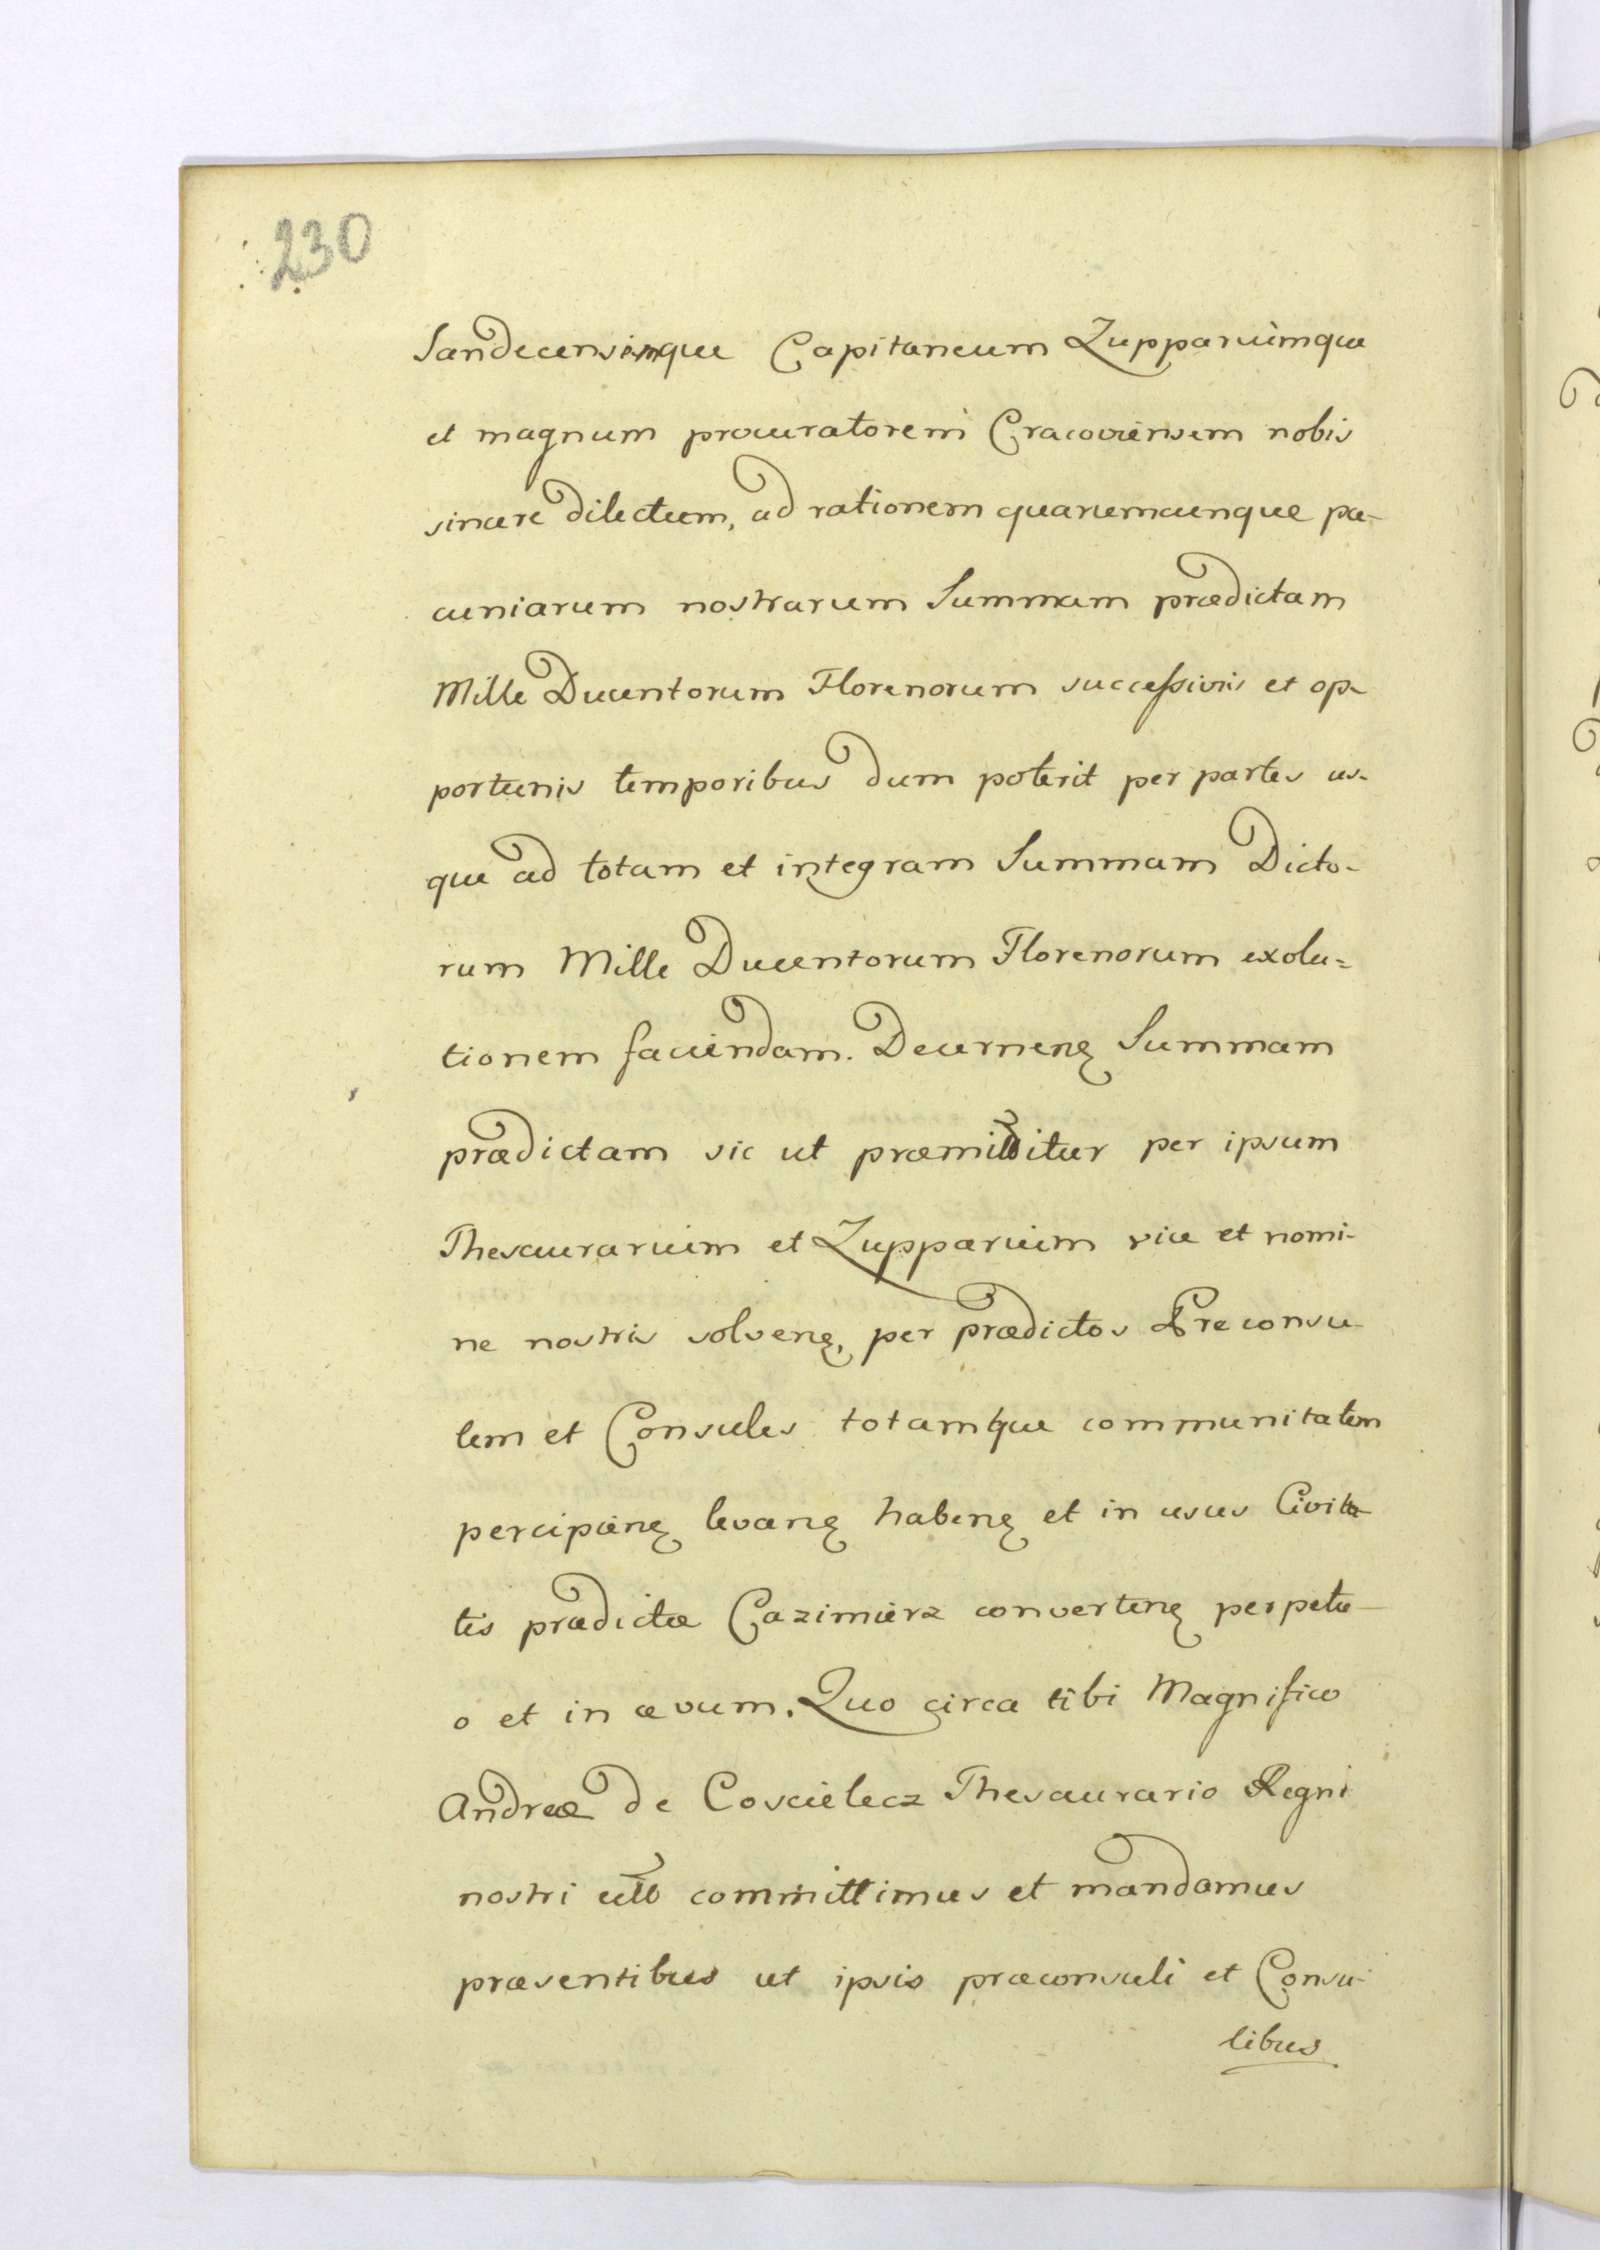 230
Sandecensemque Capitaneum Zuppariumque
et magnum procuratorem Cracoviensem nobis
sincere dilectum, ad rationem quarumcunque pe-
cuniarum nostrarum Summam prædictam
Mille Ducentorum Florenorum successivis et op-
portunis temporibus dum poterit per partes us-
que ad totam et integram Summam Dicto-
rum Mille Ducentorum Florenorum exolu-
tionem faciendam. Decernenꝫ Summam
prædictam sic ut præmittitur per ipsum
Thesaurarium et Zupparium vice et nomi-
ne nostris solvenꝫ, per prædictos Preconsu-
lem et Consules totamque communitatem
percipienꝫ levanꝫ habenꝫ et in usus Civita-
tis prædictæ Cazimierz convertenꝫ perpetu-
o et in ævum. Quo circa tibi Magnifico
Andreæ de Coscielecz Thesaurario Regni
nostri committimus et mandamus
præsentibus ut ipsis præconsuli et Consu-
libus